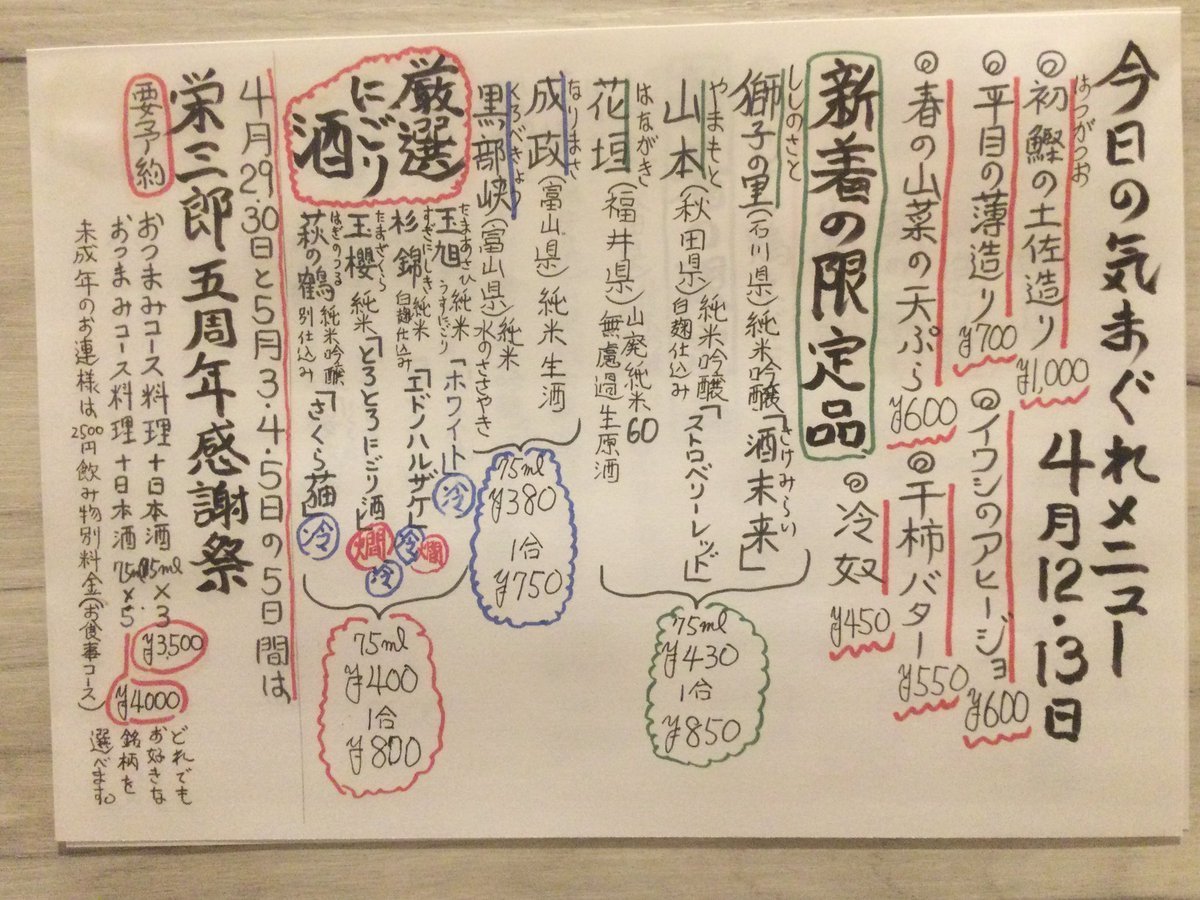 今日の気まぐれメニュー
4月12・13日
はつがつお
◎初鰹の土佐造り ¥1,000
◎平目の薄造り ¥700
◎イワシのアヒージョ ¥600
◎春の山菜の天ぷら ¥600
◎干柿バター ¥550
◎冷奴 ¥450
新着の限定品
ししのさと
獅子の里(石川県)純米吟醸「酒未来」
さけみらい
やまもと
山本(秋田県)純米吟醸 白麹仕込み「ストロベリーレッド」
はながき
花垣(福井県)山廃純米60 無慮過生原酒
75ml ¥430 1合 ¥850
なりまさ
成政(富山県)純米生酒
くろべきょう
黒部峡(富山県)純米 水のささやき
75ml ¥380 1合 ¥750
厳選にごり酒
たまあさひ
玉旭 純米 うすにごり「ホワイト」冷
すぎにしき
杉錦 純米 白麹仕込み「エドノハルザケ」冷 燗
たまざくら
玉櫻 純米「とろとろにごり酒」燗 冷
はぎのつる
萩の鶴 純米吟醸 別仕込み「さくら猫」冷
75ml ¥400 1合 ¥800
4月29.30日と5月3.4.5日の5日間は
栄三郎 五周年感謝祭
要予約
おつまみコース料理+日本酒75ml×3 ¥3,500
おつまみコース料理+日本酒75ml×5 ¥4000
どれでもお好きな銘柄を選べます。
未成年のお連様は2500円飲み物別料金(お食事コース)